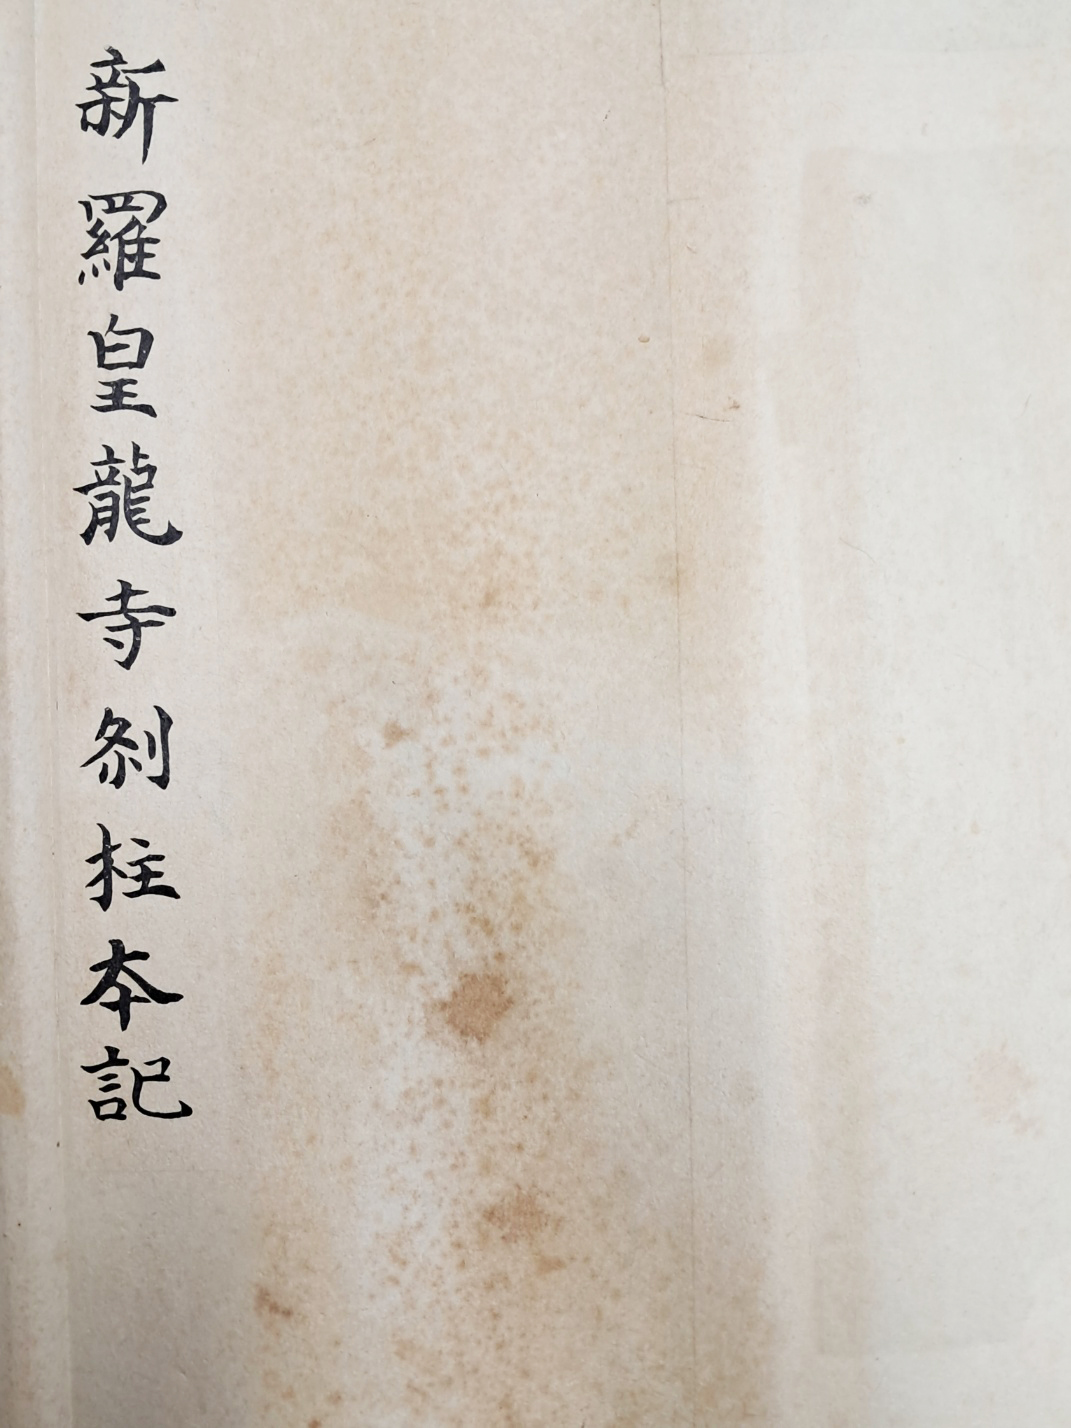 新羅皇龍寺刹柱本記